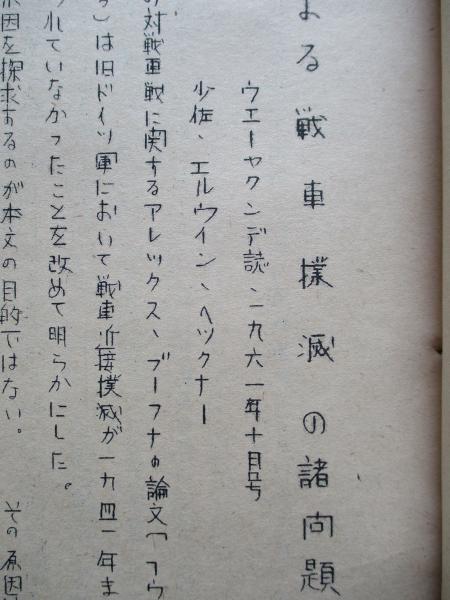 よる戦車撲滅の諸問題
ウエーヤクンデ誌、一九六一年十月号
少佐、エルウイン、ヘツクナー
の対戦車戦に関するアレックス、ブーフナの論文(「ウ
)は旧ドイツ軍において戦車近接撲滅が一九四一年ま
れていなかったことを改めて明らかにした。
原因を探求するのが本文の目的ではない。 その原因